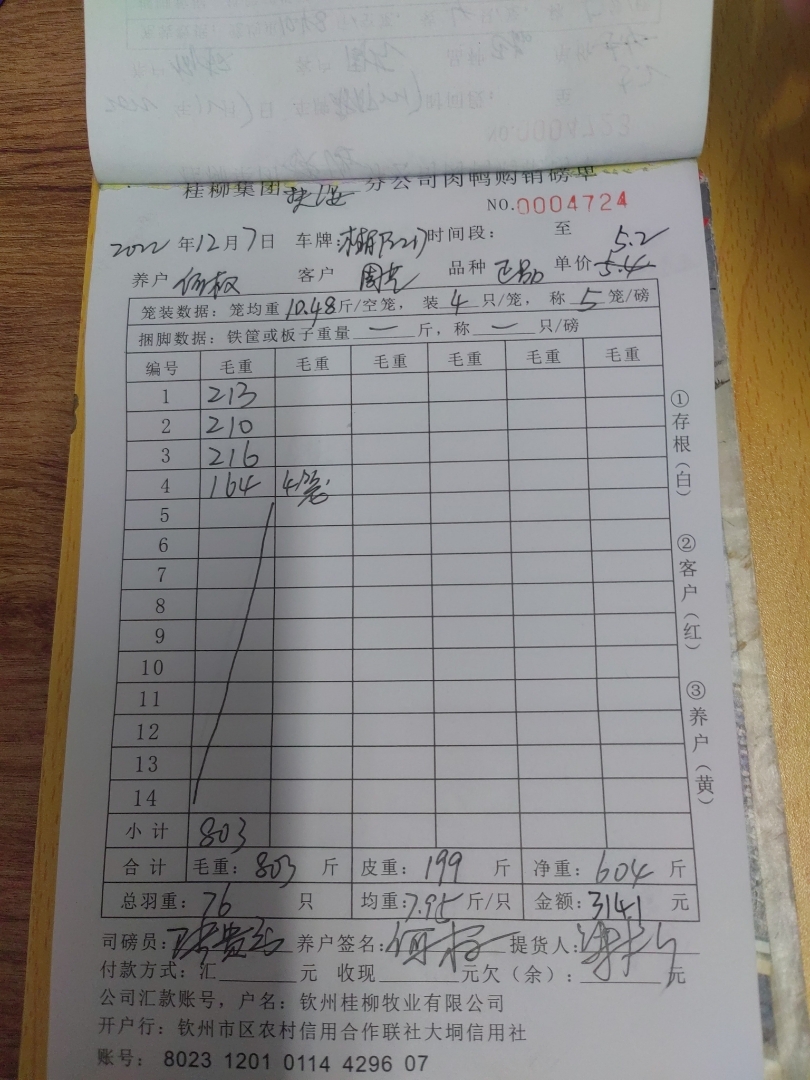 桂柳集团 分公司肉鸭购销磅单
NO.0004724
2022年12月7日 车牌: 时间段: 至 5.2
养户 何权 客户 周 品种 正品 单价 5.4
笼装数据:笼均重10.48斤/空笼,装4只/笼,称5笼/磅
捆脚数据:铁筐或板子重量一斤,称一只/磅
编号 毛重 毛重 毛重 毛重 毛重 毛重
1 213
2 210
3 216
4 164 4笼
5
6
7
8
9
10
11
12
13
14
小计 803
合计 毛重:803斤 皮重:199斤 净重:604斤
总羽重:76只 均重:7.95斤/只 金额:3141元
司磅员: 养户签名:何权 提货人:
付款方式:汇______元 收现______元欠(余):______元
公司汇款账号,户名:钦州桂柳牧业有限公司
开户行:钦州市区农村信用合作联社大垌信用社
账号: 8023 1201 0114 4296 07
①存根(白)
②客户(红)
③养户(黄)